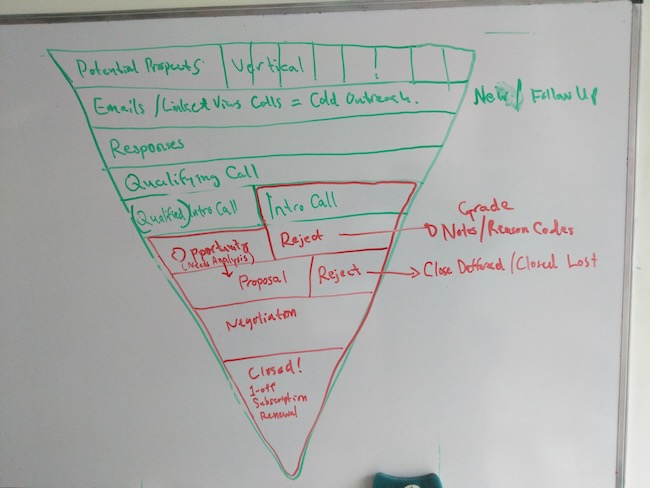 Potential Prospects Vertical
Emails / Linked Views Calls = Cold Outreach.
New / Follow Up
Responses
Qualifying Call
(Qualified) Intro Call
Intro Call
Grade
Reject
Notes/Reason Codes
Opportunity
(Needs Analysis)
Proposal
Reject
Close Deffered/Closed Lost
Negotiation
Closed!
1-off
Subscription
Renewal